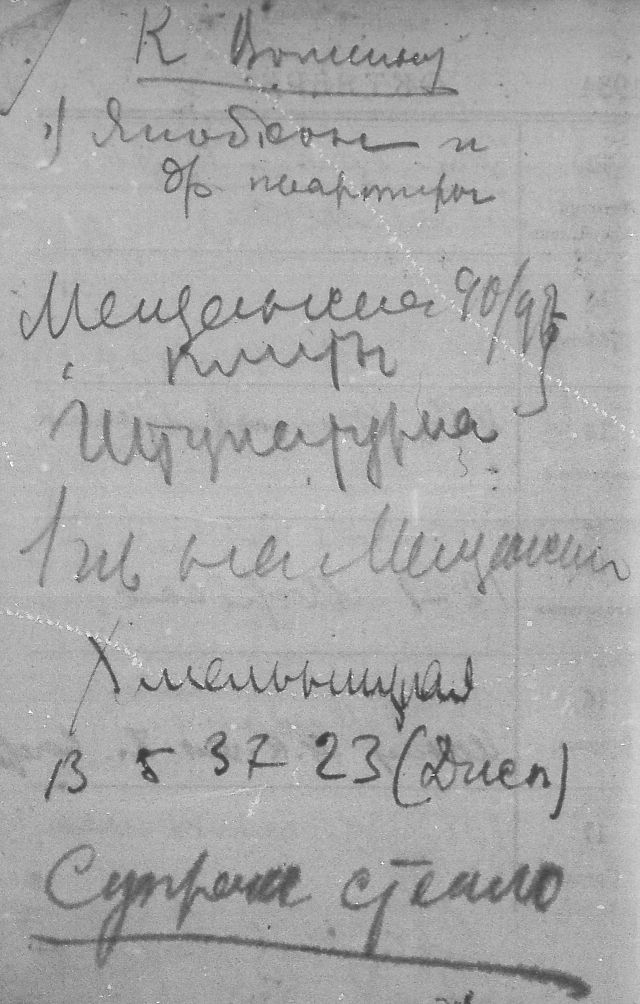 К Волкину
1) Якобсон и
др квартиры
Мещанская 90/92
Книги
Штукатурка
1 кв на Мещанскей
Хмельницкая
В 5 37 23 (Дисп)
Супрен стекло